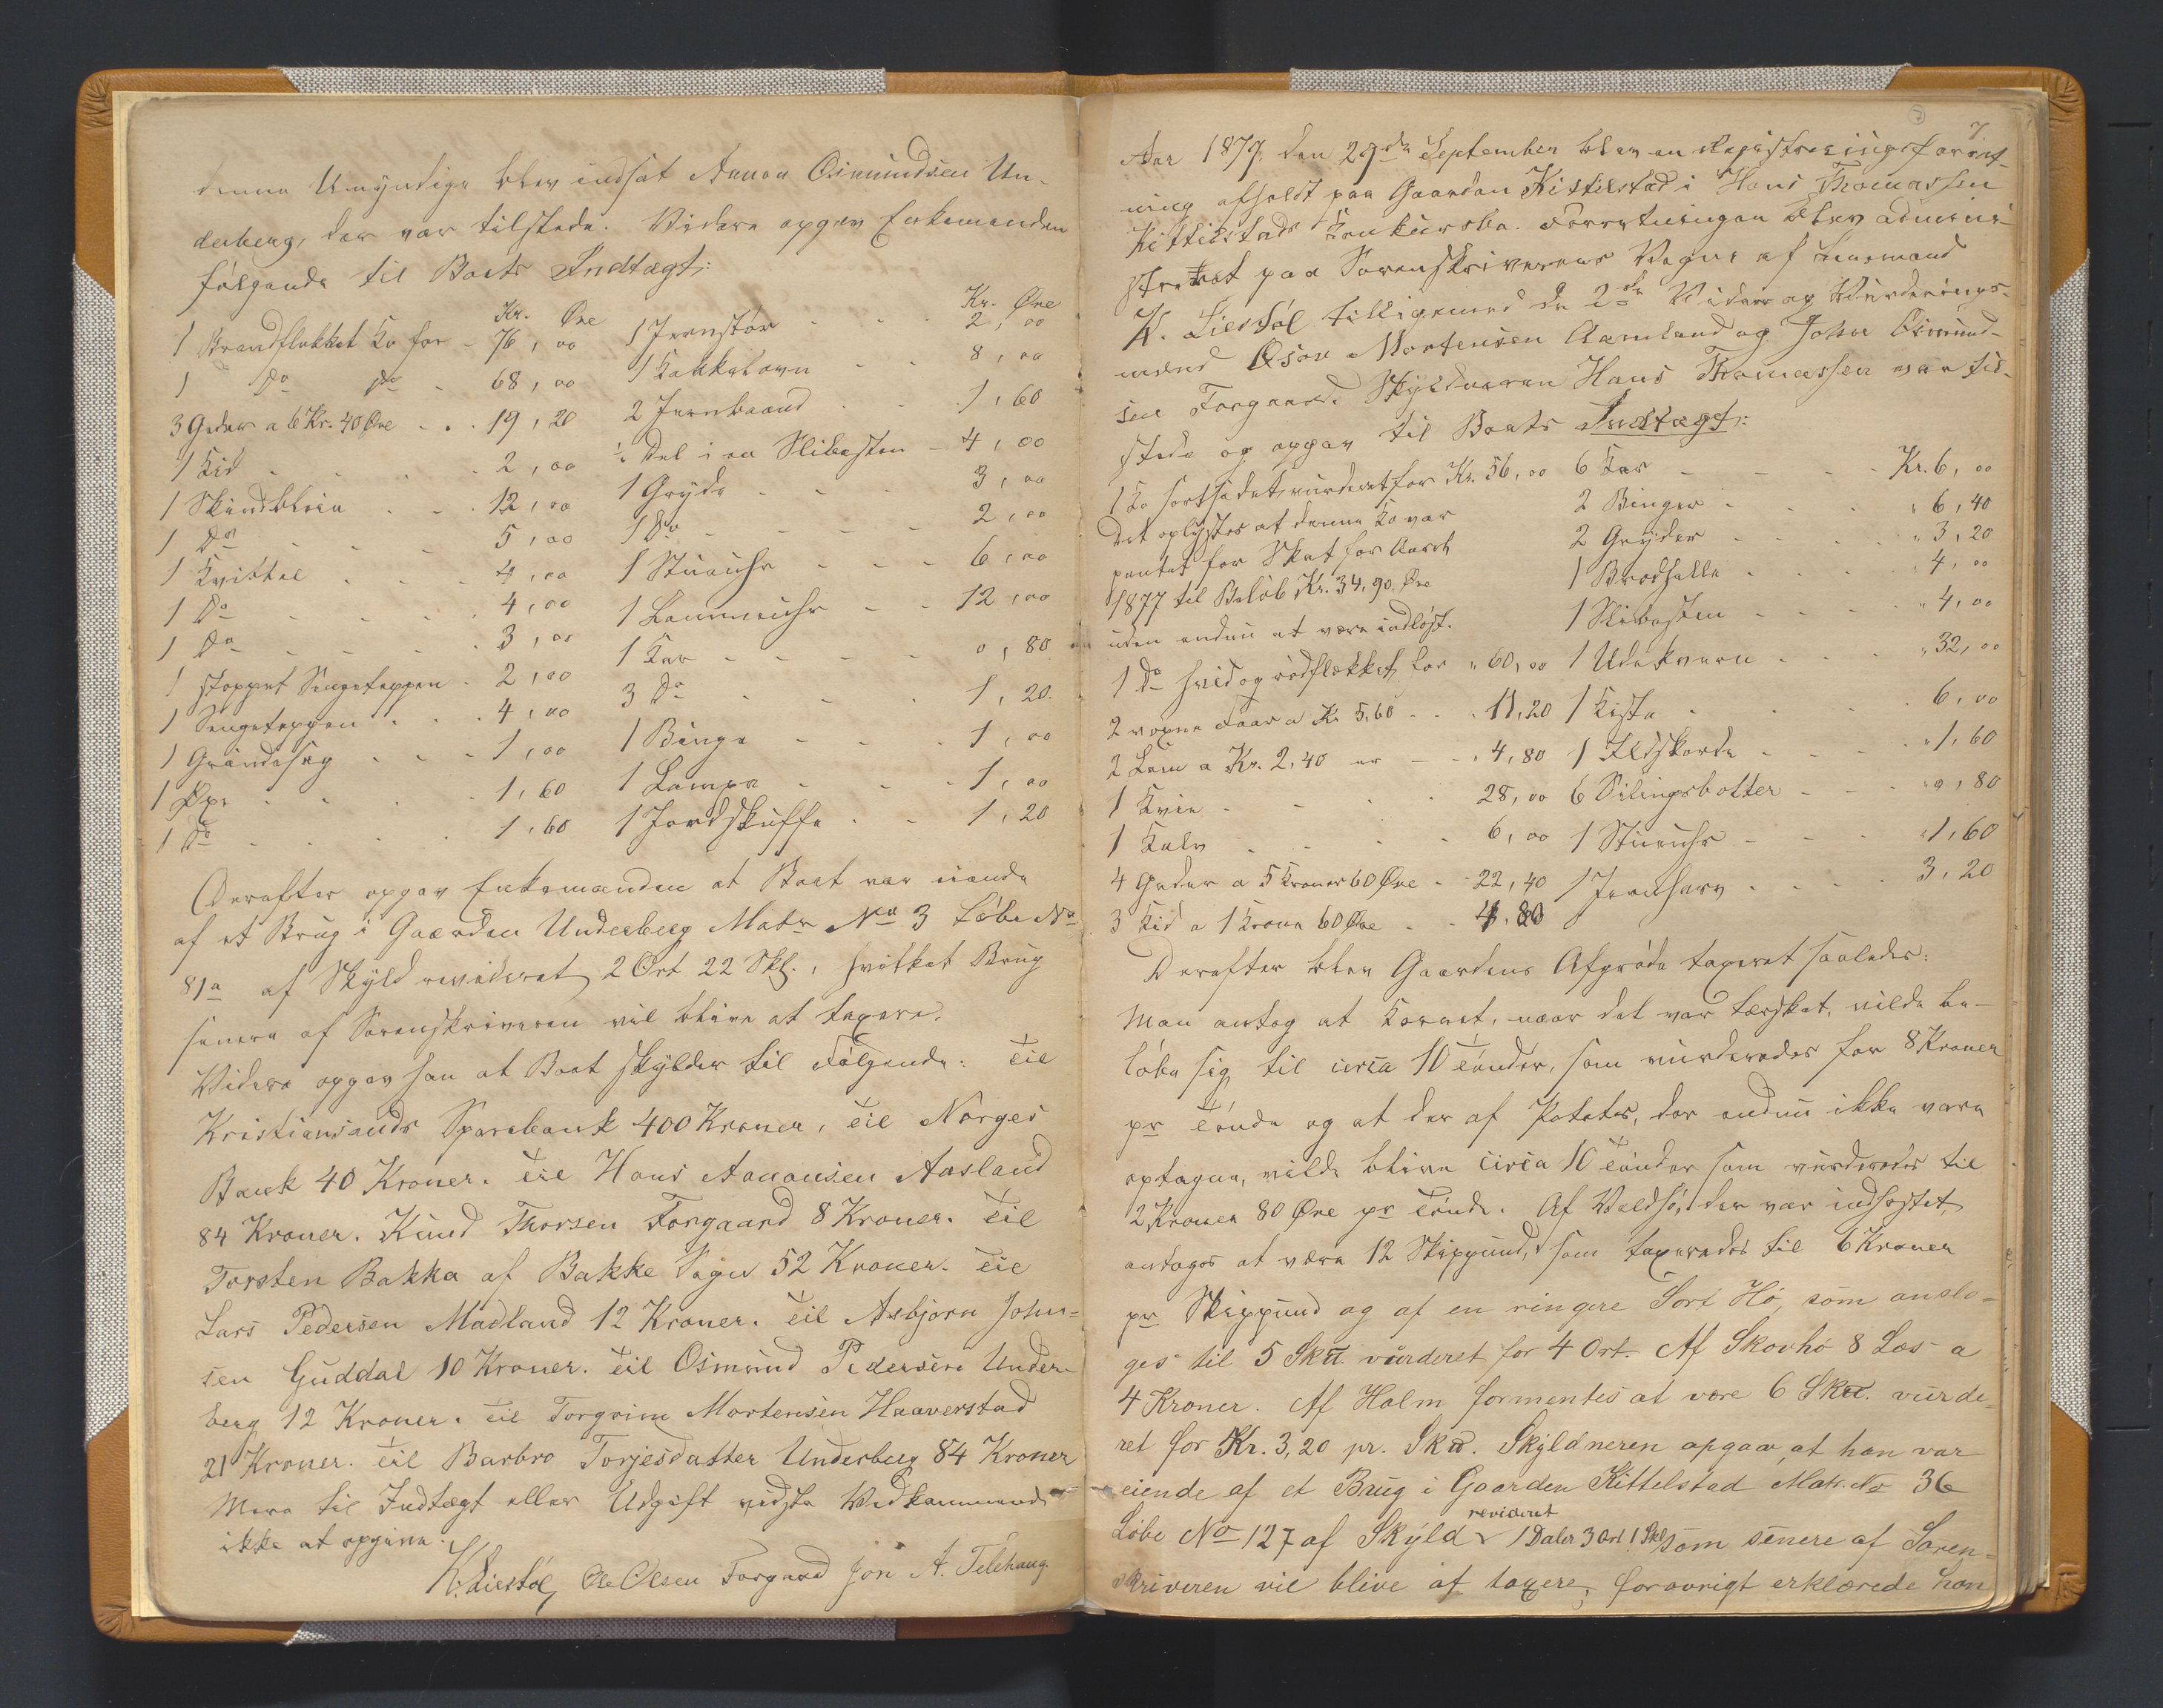 denne Umyndige blev indsat Aanon Osmundsen Un-
derberg, der var tilstede. Videre opgav Enkemanden
følgende til Boets Indtægt:
Kr. Øre
1 Brandflekket Ko for - 76,00
1 Do Do - 68,00
3 Geder a 6 Kr. 40 Øre - 19,20
1 Kid - 2,00
1 Skindbloia - 12,00
1 Do - 5,00
1 Kvittel - 4,00
1 Do - 4,00
1 Do - 3,00
1 stoppet Sengeteppen - 2,00
1 Sengeteppen - 4,00
1 Grindesag - 1,00
1 Øxe - 1,60
1 Do - 1,60
Kr. Øre
1 Jernstør - 2,00
1 Kakkelovn - 8,00
2 Jernbaand - 1,60
½ Del i en Slibesten - 4,00
1 Gryde - 3,00
1 Do - 2,00
1 Stueuhr - 6,00
1 Lommeuhr - 12,00
1 Kar - 0,80
3 Do - 1,20
1 Binge - 1,00
1 Lampe - 1,00
1 Jordskuffe - 1,20
Derefter opgav Enkemanden at Boet var eiende
af et Brug i Gaarden Underberg Matr No 3 Løbe No
81a af Skyld revideret 2 Ort 22 Skl., hvilket Brug
senere af Sorenskriveren vil blive at taxere.
Videre opgav han at Boet skylder til Følgende: Til
Kristiansands Sparebank 400 Kroner, til Norges
Bank 40 Kroner. Til Hans Aanonsen Aasland
84 Kroner. Knud Thorsen Forgaard 8 Kroner. Til
Torsten Bakka af Bakke Sogn 52 Kroner. Til
Lars Pedersen Madland 12 Kroner. Til Asbjørn John=
sen Guddal 10 Kroner. Til Osmund Pedersen Under-
berg 12 Kroner. Til Torgrim Mortensen Haaverstad
21 Kroner. Til Barbro Torjesdatter Underberg 84 Kroner
Mere til Indtægt eller Udgift vidste Vedkommende
ikke at opgive.
K. Liestøl, Ole Olsen Forgaard Jon A. Telehaug
7.
Aar 1879, den 29de September blev en Registreringsforret-
ning afholdt paa Gaarden Kittelstad i Hans Thomassen
Kittilstads Konkursbo. Forretningen blev admini-
streret paa Sorenskriverens Vegne af Lensmand
K. Liestøl tilligemed de 2de Vidner og Vurderings-
mænd Osov Mortensen Aamland og John Osmund-
sen Forgaard. Skyldneren Hans Thomassen var til-
stede og opgav til Boets Indtægt:
1 Ko sortsidet, vurderet for Kr. 56,00
Det oplystes at denne Ko var
pantet for Skat for Aaret
1877 til Beløb Kr. 34,90 Øre
uden endnu at være indløst.
1 Do hvid og rødflekket for " 60,00
2 voxne Faar a Kr 5,60 - 11,20
2 Lam a Kr. 2,40 er - 4,80
1 Kvie - 28,00
1 Kalv - 6,00
4 Geder a 5 Kroner 60 Øre - 22,40
3 Kid a 1 Krone 60 Øre - 4,80
6 Kar - Kr. 6,00
2 Binger - " 6,40
2 Gryder - " 3,20
1 Brødhelle - " 4,00
1 Slibesten - " 4,00
1 Udekvern - " 32,00
1 Kiste - 6,00
1 Ildskorde - " 1,60
6 Silingsbotter - " 0,80
1 Stueuhr - " 1,60
1 Jernharv - 3,20
Derefter blev Gaardens Afgrøde taxeret saaledes:
Man antog at Kornet, naar det var tærsket, vilde be-
løbe sig til circa 10 Tønder, som vurderedes for 8 Kroner
pr Tønde og at der af Potetes, der endnu ikke vare
optagne, vilde blive circa 10 Tønder som vurderedes til
2 Kroner 80 Øre pr Tønde. Af Voldhø, der var indhøstet,
antoges at være 12 Skippund, som taxeredes til 6 Kroner
pr Skippund og af en ringere Sort Hø, som anslo=
ges til 5 Sk℔. vurderet for 4 Ort. Af Skovhø 8 Læs a
4 Kroner. Af Halm formentes at være 6 Sk℔. vurde=
ret for Kr. 3,20 pr. Sk℔. Skyldneren opgav, at han var
eiende af et Brug i Gaarden Kittelstad Matr. No 36
revideret
Løbe No 127 af Skyld 1 Daler 3 Ort 1 Skl. som senere af Soren=
skriveren vil blive at taxere; forøvrigt erklærede han